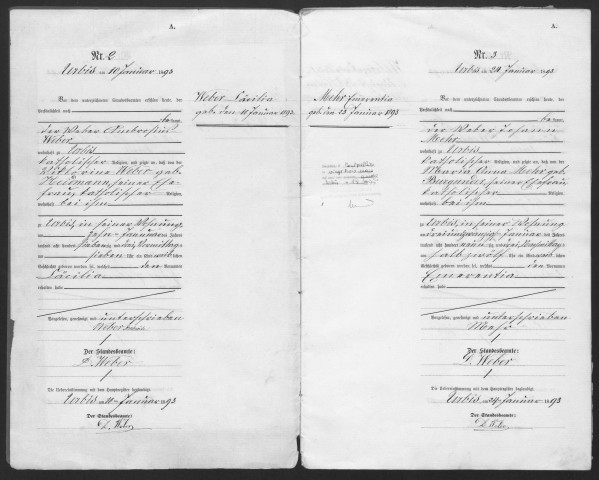 A.
Nr. 2
Urbis am 10 Januar 1893
Vor dem unterzeichneten Standesbeamten erschien heute, der
Persönlichkeit nach
kannt,
der Weber Ambrosius
Weber
wohnhaft zu Urbis
katholischer Religion, und zeigte an, daß von der
Viktorine Weber geb.
seiner Ehe-
frau, katholischer Religion,
wohnhaft bei ihm
zu Urbis, in seiner Wohnung
am zehn Januar des Jahres
tausend acht hundert neunzig und drei Vormittags
um sieben Uhr ein Kind weib-lichen
Geschlechts geboren worden sei, welches den Vornamen
Cäcilia
erhalten habe
Vorgelesen, genehmigt und unterschrieben
Weber
Der Standesbeamte:
D. Weber
Die Uebereinstimmung mit dem Hauptregister beglaubigt
Urbis am 10 Januar 1893
Der Standesbeamte:
D. Weber
Weber Cäcilia
geb. den 10 Januar 1893.
Mehr Emerentia
geb. den 23 Januar 1893
A.
Nr. 3
Urbis am 24 Januar 1893
Vor dem unterzeichneten Standesbeamten erschien heute, der
Persönlichkeit nach
kannt,
der Weber Johann
Mehr
wohnhaft zu Urbis
katholischer Religion, und zeigte an, daß von der
Maria Anna Mehr geb.
Burgunder, seiner Ehefrau
katholischer Religion,
wohnhaft bei ihm
zu Urbis, in seiner Wohnung
am dreiundzwanzigsten Januar des Jahres
tausend acht hundert neunzig und drei Nachmittags
um halb zwölf Uhr ein Kind weib-lichen
Geschlechts geboren worden sei, welches den Vornamen
Emerentia
erhalten habe
Vorgelesen, genehmigt und unterschrieben
Mehr
Der Standesbeamte:
D. Weber
Die Uebereinstimmung mit dem Hauptregister beglaubigt
Urbis am 24 Januar 1893
Der Standesbeamte:
D. Weber